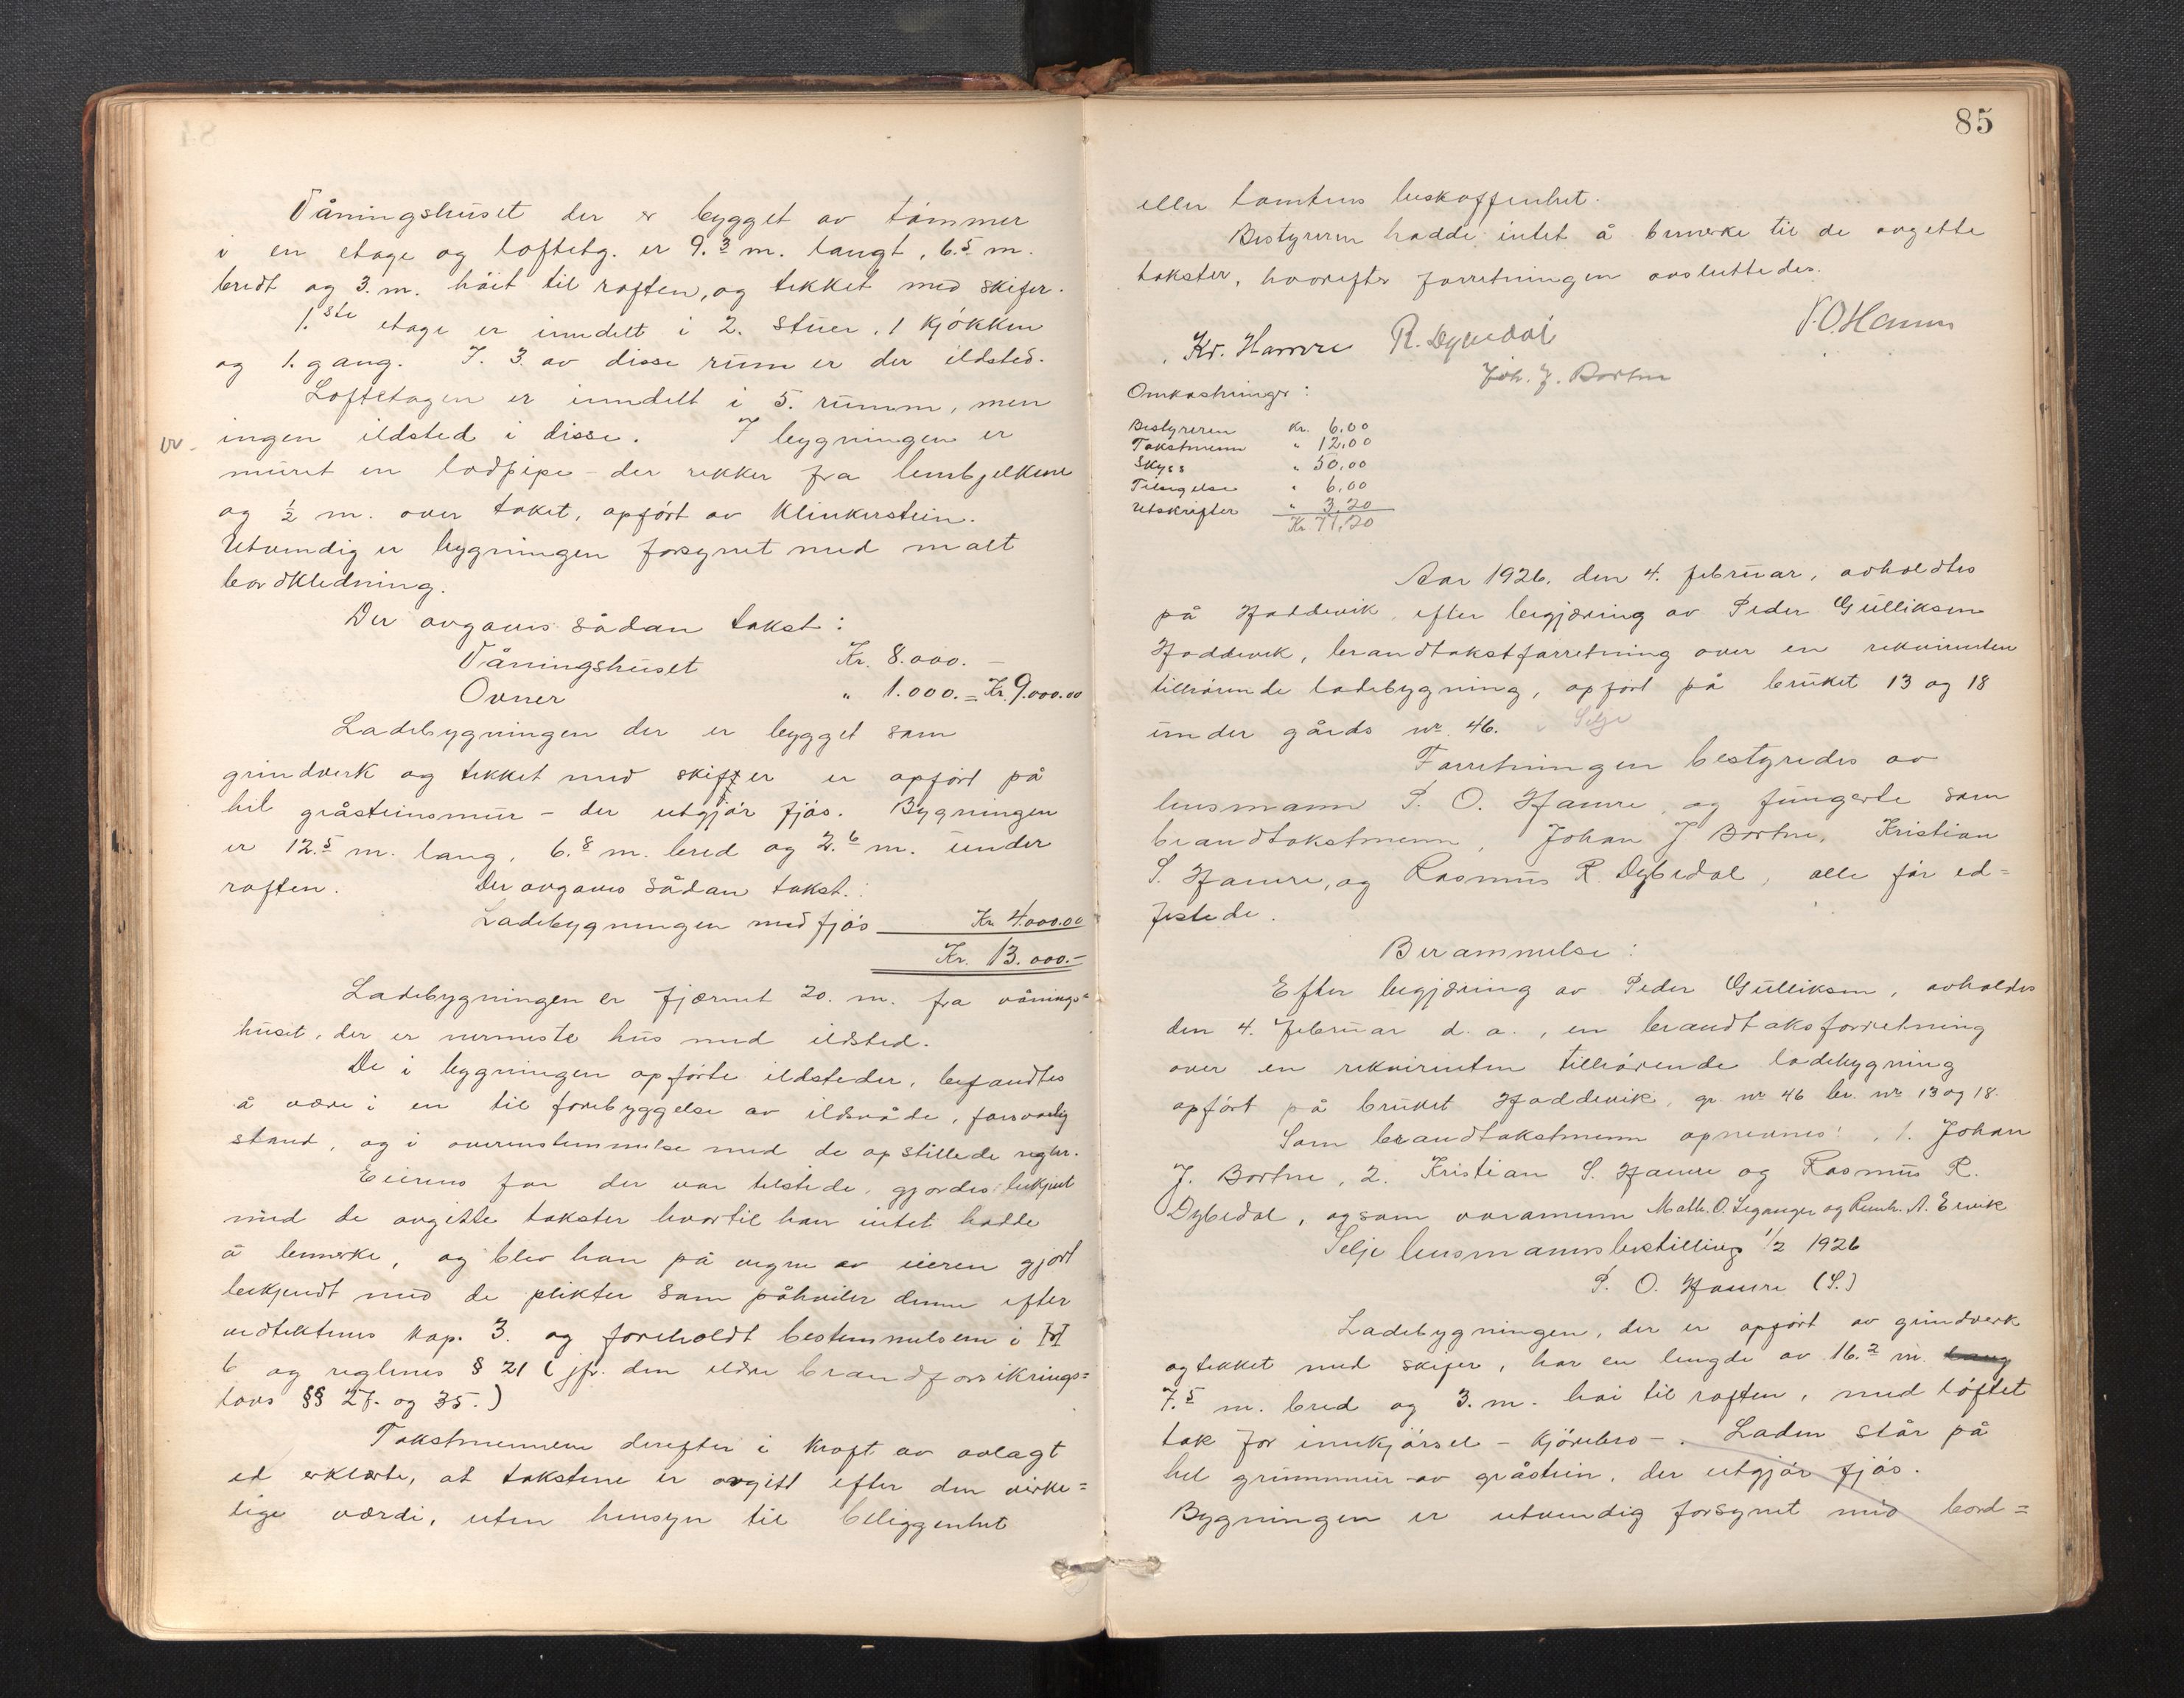 Våningshuset der er bygget av tømmer
i en etage og loftetg. er 9.3 m. langt, 6.5 m.
bredt og 3. m. høit til raften, og tekket med skifer.
1.ste etage er inndelt i 2. stuer, 1 kjøkken
og 1. gang. I. 3. av disse rum er der ildsted.
Loftetagen er inndelt i 5. rumm, men
ingen ildsted i disse. I bygningen er
muret en lodpipe - der rekker fra lembjelkene
og 1/2 m. over taket, opført av klinkerstein.
Utvendig er bygningen forsynet med malt
bordkledning.
Der avgaves sådan takst:
Våningshuset Kr. 8.000. -
Ovner " 1.000. = Kr. 9.000.00
Ladebygningen der er bygget som
grindverk og tekket med skiffer er opført på
hel gråsteinsmur - der utgjør fjøs. Bygningen
er 12.5 m. lang, 6.8 m. bred og 2.6 m. under
raften. Der avgaves sådan takst:
Ladebygningen med fjøs Kr. 4.000.00
Kr. 13.000.-
Ladebygningen er fjærnet 20. m. fra vånings=
huset, der er nermeste hus med ildsted.
De i bygningen opførte ildsteder, befandtes
å være i en til forebyggelse av ildsvåde, forsvarlig
stand, og i overenstemmelse med de opstillede regler.
Eierens far der var tilstede, gjordes bekjent
med de avgitte takster hvortil han intet hadde
å bemerke, og blev han på vegne av eieren gjort
bekjendt med de plikter som påhviler denne efter
vedtektenes kap. 3. og foreholdt bestemmelsene i
6 og reglenes § 21 (jfr. den eldre brandforsikrings=
lovs §§ 27. og 35.)
Takstmennene derefter i kraft av avlagt
ed erklærte, at takstene er avgitt efter den virke=
lige værdi, uten hensyn til beliggenhet
85
eller tomtens beskaffenhet.
Bestyreren hadde intet å bemerke til de avgitte
takster, hvorefter forretningen avsluttedes.
P.O. Hamre
Kr. Hamre R. Dybedal
Joh. J. Bortne
Omkostninger:
Bestyreren Kr. 6.00
Takstmenn " 12.00
Skyss " 50.00
Tilsigelse " 6.00
Utskrifter " 3.20
Kr. 77.20
Aar 1926. den 4. februar, avholdtes
på Hoddevik, efter begjæring av Peder Gulliksen
Hoddevik, brandtakstforretning over en rekvirenten
tilhørende ladebygning, opført på bruket 13 og 18
under gårds nr. 46. i Selje
Forretningen bestyredes av
lensmann P. O. Hamre, og fungerte som
brandtakstmenn, Johan J Bortne, Kristian
S. Hamre, og Rasmus R. Dybedal, alle før ed=
festede.
Berammelse:
Efter begjæring av Peder Gulliksen, avholdes
den 4. februar d. a., en brandtaksforretning
over en rekvirenten tilhørende ladebygning
opført på bruket Hoddevik, gr. nr 46 br. nr 13 og 18.
Som brandtakstmenn opnevnes: 1. Johan
J. Bortne, 2. Kristian S. Hamre og Rasmus R.
Dybedal, og som varamenn Math. O. Leganger og Reinh. A. Ervik
Selje lensmannsbestilling 1/2 1926
P. O. Hamre (S.)
Ladebygningen, der er opført av grindverk
og tekket med skifer, har en lengde av 16.2 m. lang
7.5 m. bred og 3. m. høi til raften, med løftet
tak for innkjørsel - kjørebro -. Laden står på
hel grunnmur av gråstein, der utgjør fjøs.
Bygningen er utvendig forsynet med bord=